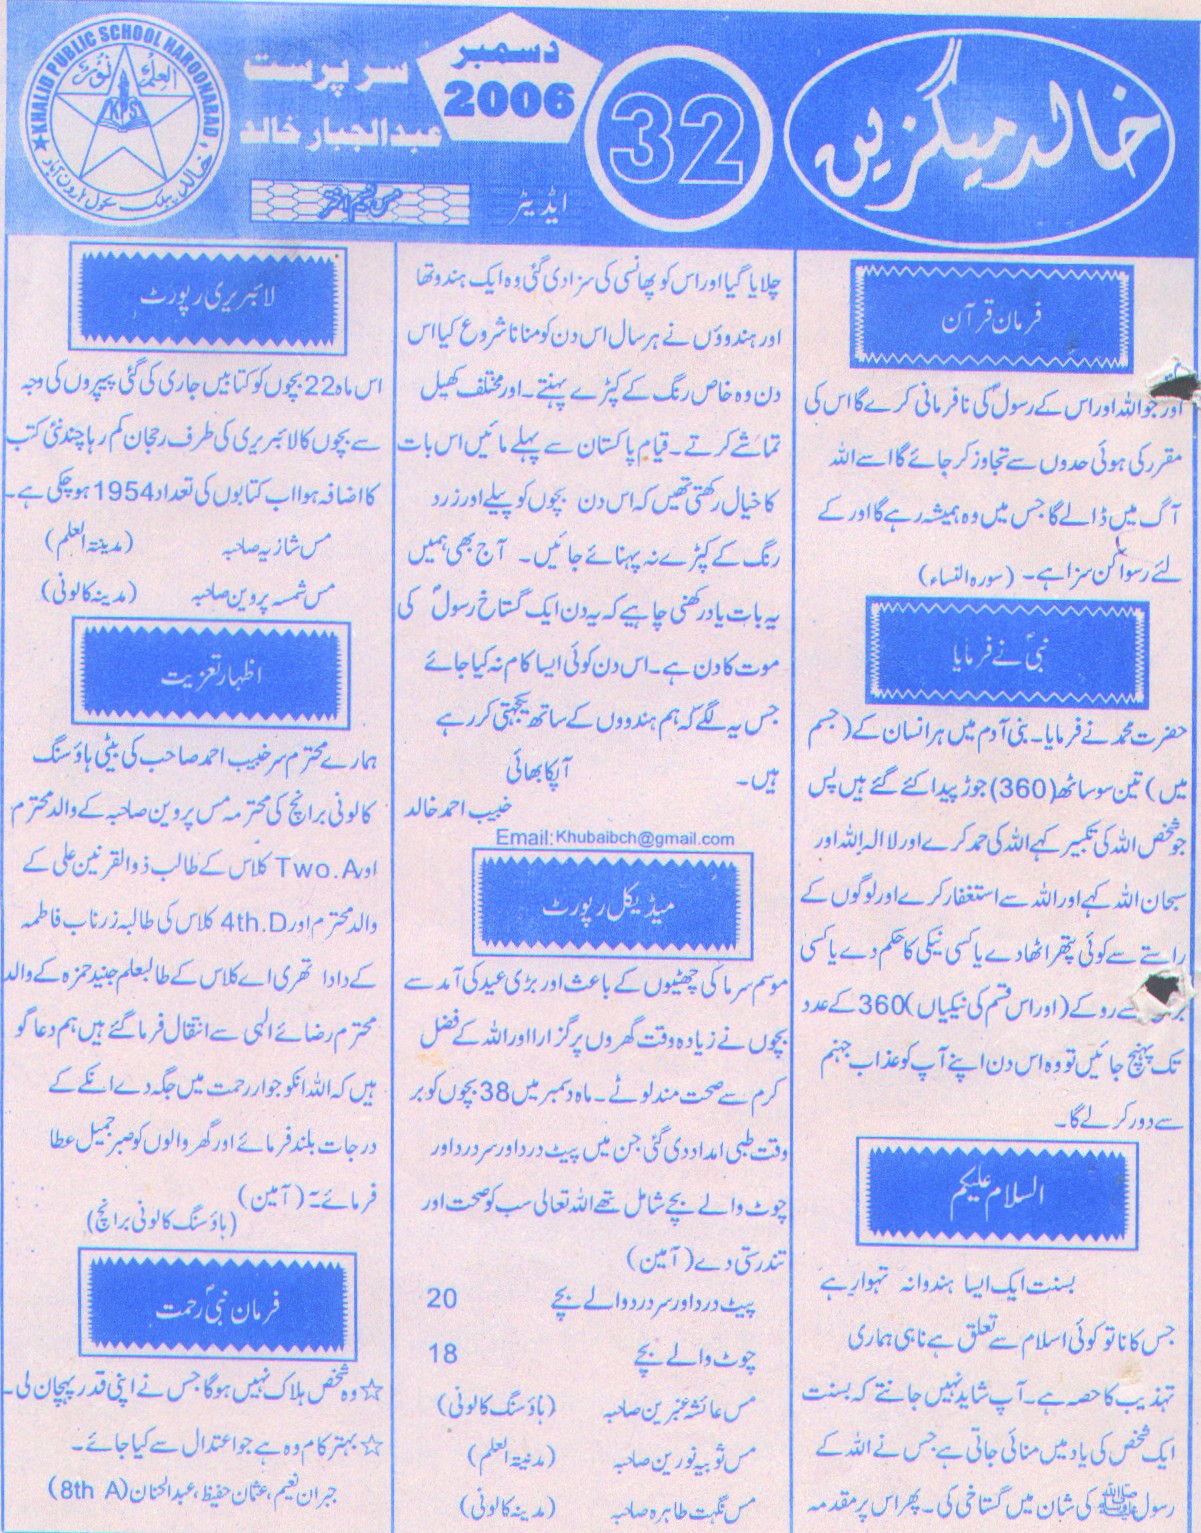 خالد میگزین
32
دسمبر
2006
سرپرست
عبدالجبار خالد
ایڈیٹر
KHALID PUBLIC SCHOOL HAROONABAD
KPS
خالد پبلک سکول ہارون آباد
فرمان قرآن
اور جو اللہ اور اس کے رسولؐ کی نافرمانی کرے گا اس کی
مقرر کی ہوئی حدوں سے تجاوز کر جائے گا اسے اللہ
آگ میں ڈالے گا جس میں وہ ہمیشہ رہے گا اور کے
لئے رسوا کن سزا ہے۔ (سورہ النساء)
نبیؐ نے فرمایا
حضرت محمد نے فرمایا۔ بنی آدم میں ہر انسان کے (جسم
میں) تین سو ساٹھ (360) جوڑ پیدا کئے گئے ہیں پس
جو شخص اللہ کی تکبیر کہے اللہ کی حمد کرے اور لا الہ اللہ اور
سبحان اللہ کہے اور اللہ سے استغفار کرے اور لوگوں کے
راستے سے کوئی پتھر اٹھا دے یا کسی نیکی کا حکم دے یا کسی
سے روکے (اور اس قسم کی نیکیاں) 360 کے عدد
تک پہنچ جائیں تو وہ اس دن اپنے آپ کو عذاب جہنم
سے دور کر لے گا۔
السلام علیکم
بسنت ایک ایسا ہندوانہ تہوار ہے
جس کا نا تو کوئی اسلام سے تعلق ہے نا ہی ہماری
تہذیب کا حصہ ہے۔ آپ شاید نہیں جانتے کہ بسنت
ایک شخص کی یاد میں منائی جاتی ہے جس نے اللہ کے
رسول ﷺ کی شان میں گستاخی کی۔ پھر اس پر مقدمہ
چلایا گیا اور اس کو پھانسی کی سزا دی گئی وہ ایک ہندو تھا
اور ہندوؤں نے ہر سال اس دن کو منانا شروع کیا اس
دن وہ خاص رنگ کے کپڑے پہنتے۔ اور مختلف کھیل
تماشے کرتے۔ قیام پاکستان سے پہلے مائیں اس بات
کا خیال رکھتی تھیں کہ اس دن بچوں کو پیلے اور زرد
رنگ کے کپڑے نہ پہنائے جائیں۔ آج بھی ہمیں
یہ بات یاد رکھنی چاہیے کہ یہ دن ایک گستاخ رسولؐ کی
موت کا دن ہے۔ اس دن کوئی ایسا کام نہ کیا جائے
جس یہ لگے کہ ہم ہندووں کے ساتھ یکجہتی کر رہے
ہیں۔ آپکا بھائی
خبیب احمد خالد
Email: Khubaibch@gmail.com
میڈیکل رپورٹ
موسم سرما کی چھٹیوں کے باعث اور بڑی عید کی آمد سے
بچوں نے زیادہ وقت گھروں پر گزارا اور اللہ کے فضل
کرم سے صحت مند لوٹے۔ ماہ دسمبر میں 38 بچوں کو بر
وقت طبی امداد دی گئی جن میں پیٹ درد اور سر درد اور
چوٹ والے بچے شامل تھے اللہ تعالی سب کو صحت اور
تندرستی دے (آمین)
پیٹ درد اور سر درد والے بچے 20
چوٹ والے بچے 18
مس عائشہ عنبرین صاحبہ (ہاؤسنگ کالونی)
مس ثوبیہ نورین صاحبہ (مدنیتہ العلم)
مس نگہت طاہرہ صاحبہ (مدینہ کالونی)
لائبریری رپورٹ
اس ماہ 22 بچوں کو کتابیں جاری کی گئی پیپروں کی وجہ
سے بچوں کا لائبریری کی طرف رحجان کم رہا چند نئی کتب
کا اضافہ ہوا اب کتابوں کی تعداد 1954 ہو چکی ہے۔
مس شازیہ صاحبہ (مدینتہ العلم)
مس شمسہ پروین صاحبہ (مدینہ کالونی)
اظہار تعزیت
ہمارے محترم سر خبیب احمد صاحب کی بیٹی ہاؤسنگ
کالونی برانچ کی محترمہ مس پروین صاحبہ کے والد محترم
اور Two.A کلاس کے طالب ذوالقرنین علی کے
والد محترم اور 4th.D کلاس کی طالبہ زرناب فاطمہ
کے دادا تھری اے کلاس کے طالبعلم جنید حمزہ کے والد
محترم رضائے الہی سے انتقال فرما گئے ہیں ہم دعا گو
ہیں کہ اللہ انکو جوار رحمت میں جگہ دے انکے کے
درجات بلند فرمائے اور گھر والوں کو صبر جمیل عطا
فرمائے۔ (آمین)
(ہاؤسنگ کالونی برانچ)
فرمان نبیؐ رحمت
☆ وہ شخص ہلاک نہیں ہوگا جس نے اپنی قدر پہچان لی۔
☆ بہتر کام وہ ہے جو اعتدال سے کیا جائے۔
جبران نعیم، عثمان حفیظ، عبدالحنان (8th A)